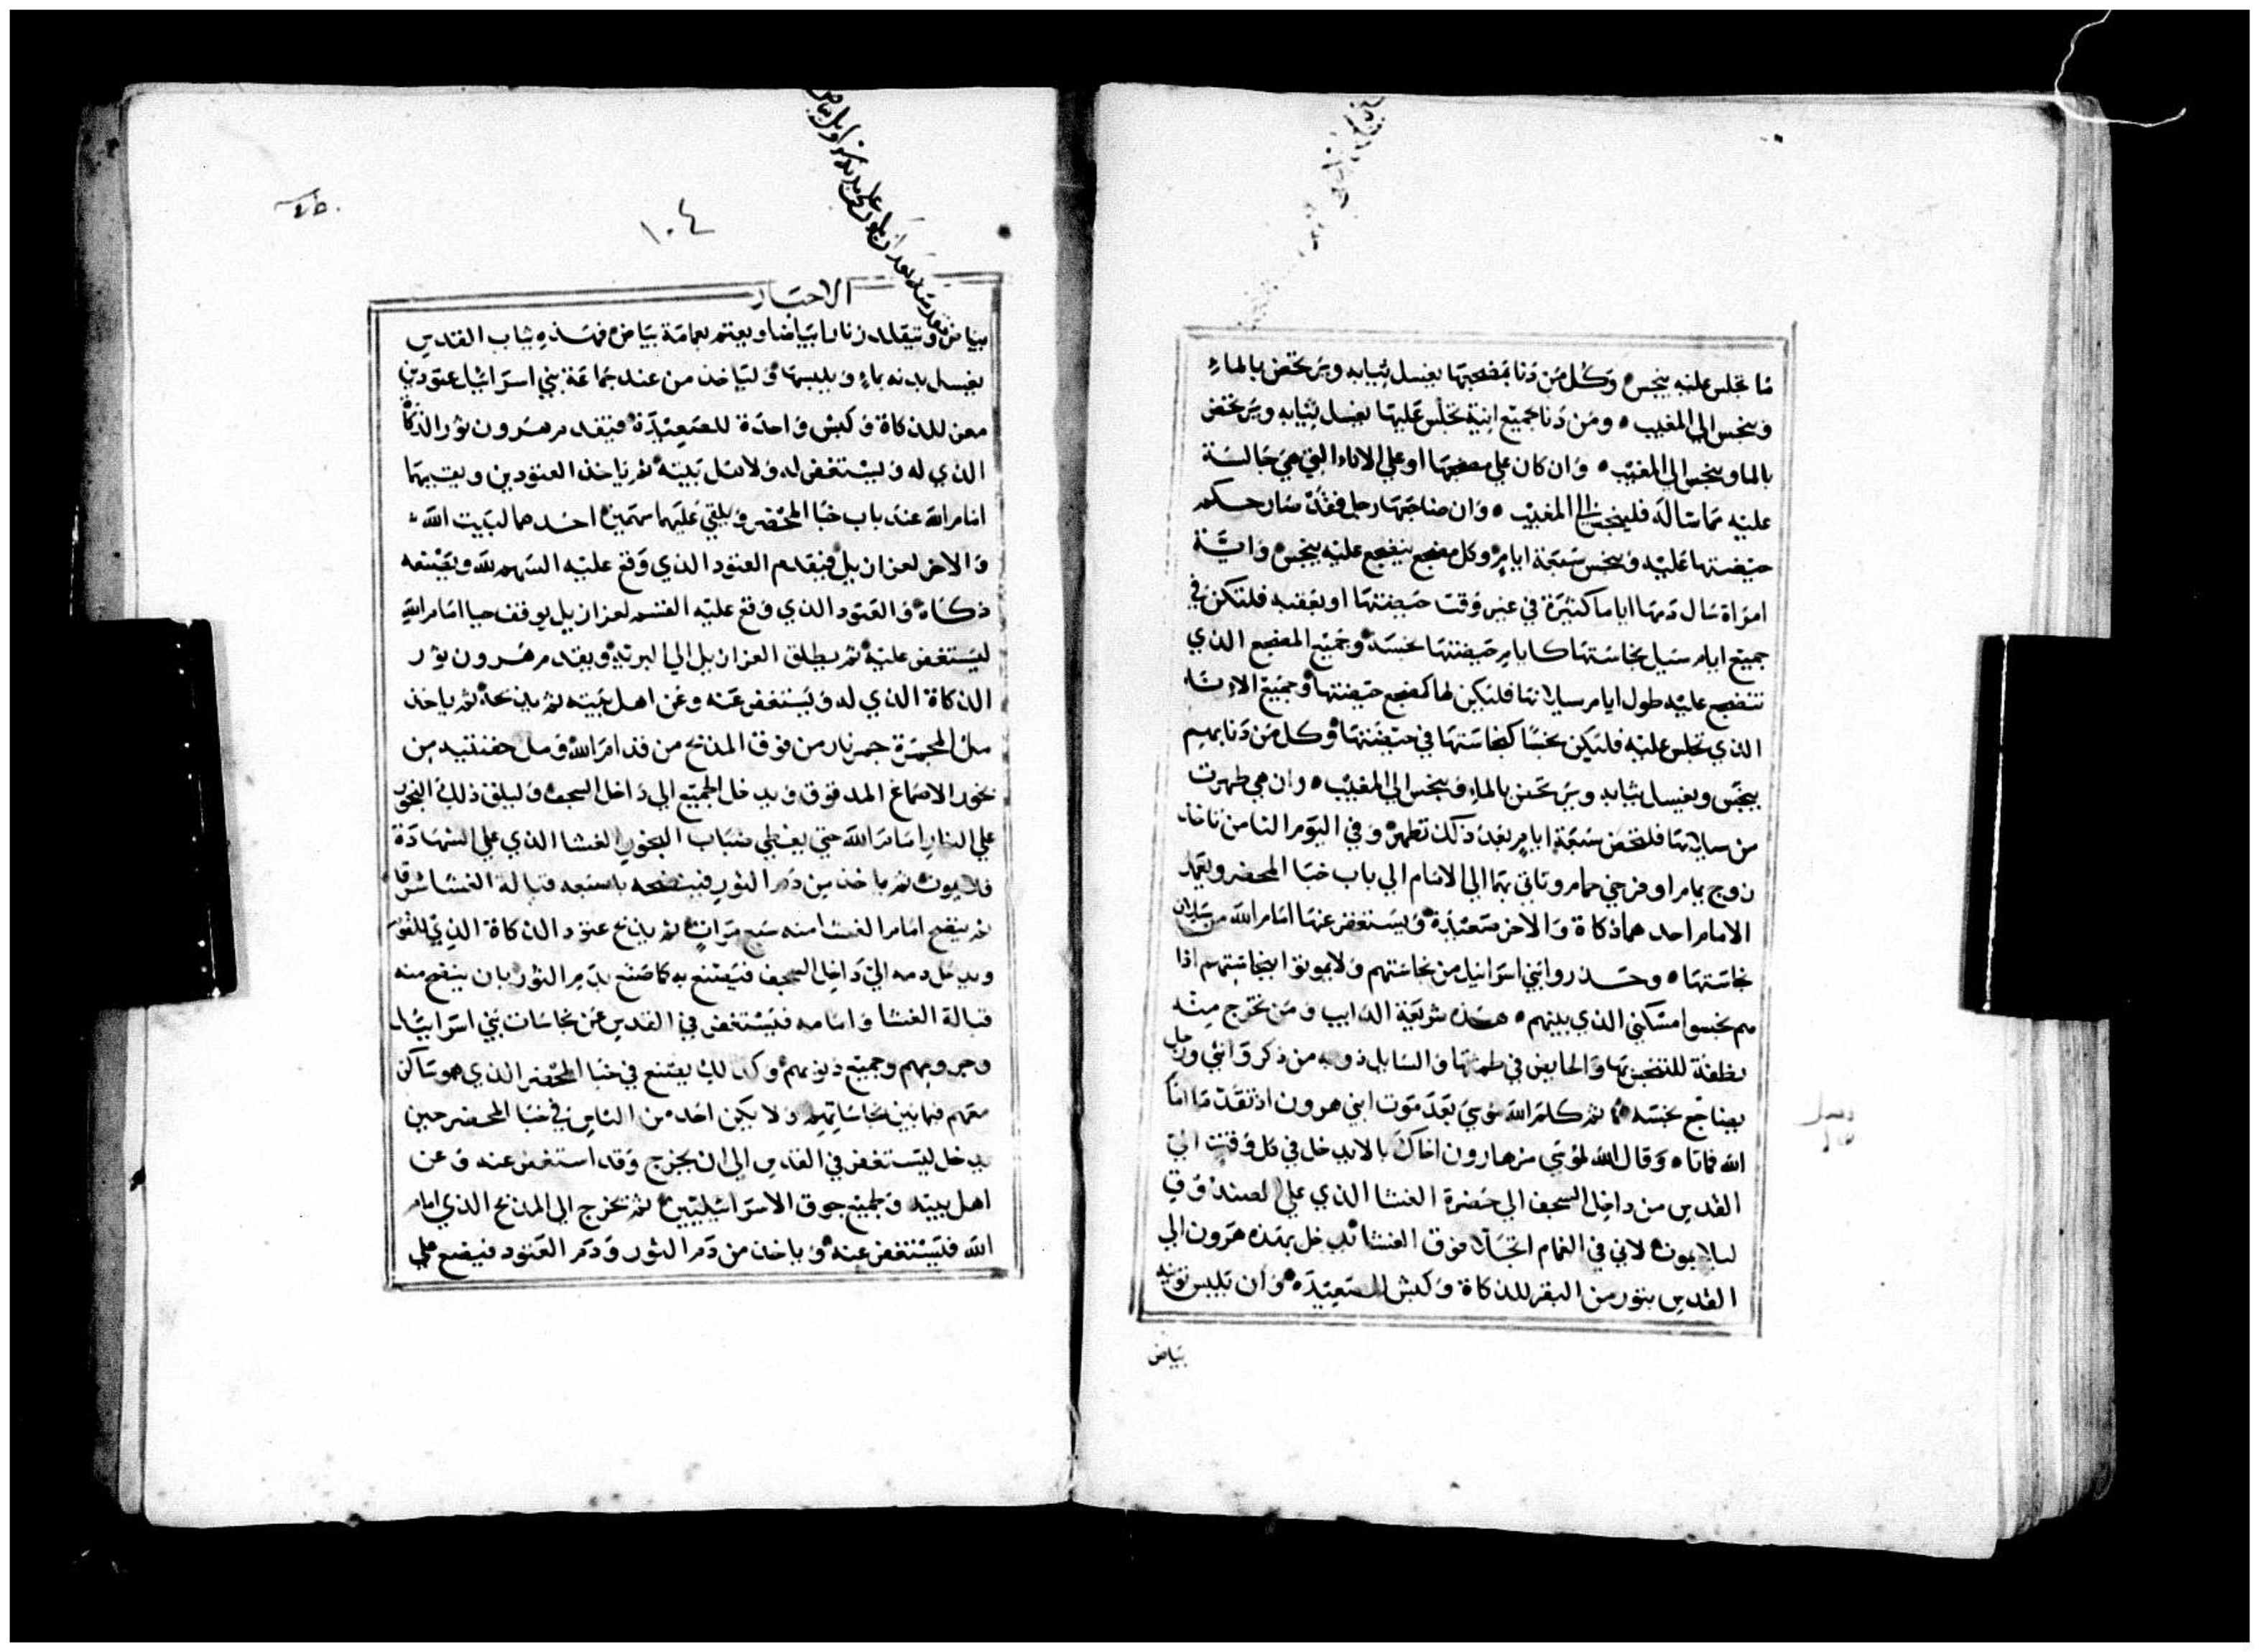 ما تجلس عليه ينجس وكل من دنا بمضجعها يغسل ثيابه ويرتحض بالماء
وينجس الي المغيب ٥ ومن دنا بجميع انية تجلس عليها يغسل ثيابه ويرتحض
بالما وينجس الي المغيب ٥ وان كان علي مضجعها او علي الاناء التي هي جالسة
عليه مماسا له فلينجس الي المغيب ٥ وان ضاجعها رجل فقد صار حكم
حيضتها عليه وينجس سبعة ايام وكل مضجع ينضجع عليه ينجس وايـة
امراة سال دمها اياما كثيرة في غير وقت حيضتها او بعقبه فلتكن في
جميع ايام سيل نجاستها كايام حيضتها نجسة وجميع المضجع الذي
تنضجع عليه طول ايام سيلانها فليكن لها كمضجع حيضتها وجميع الاناء
الذي تجلس عليه فليكن نجسا كنجاستها في حيضتها وكل من دنا بهم
ينجس ويغسل ثيابه ويرتحض بالماء وينجس الي المغيب ٥ وان هي طهرت
من سيلانها فلتحص سبعة ايام بعد ذلك تطهر وفي اليوم الثامن تاخذ
زوج يمام او فرخي حمام وتاتي بهما الي الامام الي باب خبا المحضر ويعمل
الامام احدهما ذكاة والاخر صعيدة ويستغفر عنها امام الله من سيلان
نجاستها ٥ وحذروا بني اسرائيل من نجاستهم ولا يموتوا بنجاستهم اذا
هم نجسوا مسكني الذي بينهم ٥ هذه شريعة الذايب ومن تخرج منه
نطفة للتنجس بها والحايض في طمثها والسايل ذوبه من ذكر وانثي ورجل
يضاجع نجسة ثم كلم الله موسي بعد موت ابني هرون اذ تقدما امام
الله فماتا ٥ وقال الله لموسي مر هارون اخاك بالا يدخل في كل وقت الي
القدس من داخل السجف الي حضرة الغشا الذي علي الصندوق
ليلا يموت لاني في الغمام اتجلا فوق الغشا يدخل بهذه هرون الي
القدس بثور من البقر للذكاة وكبش للصعيدة وان يلبس تونية
بياض
١٠٤
الاحبار
بياض ويتقلد زنارا بياضا ويعتم بعمامة بياض فهذه ثياب القدس
يغسل بدنه بماء ويلبسها وليأخذ من عند جماعة بني اسرائيل عتودين
معز للذكاة وكبش واحدة للصعيدة فيقدم هرون ثور الذكاة
الذي له ويستغفر له ولاهل بيته ثم ياخذ العتودين ويقيمهما
امام الله عند باب خبا المحضر ويلقي عليهما سهمين احدهما لبيت الله
والاخر لعزازيل فيقدم العتود الذي وقع عليه السهم لله ويصنعه
ذكاة والعتود الذي وقع عليه القسم لعزازيل يوقف حيا امام الله
ليستغفر عليه ثم يطلق العزازيل الي البرية ويقدم هرون ثور
الذكاة الذي له ويستغفر عنه وعن اهل بيته ثم يذبحه ثم ياخذ
مل المجمرة جمر نار من فوق المذبح من قدام الله ومل حفنتيه من
بخور الاصماغ المدقوق ويدخل الجميع الي داخل السجف وليلق ذلك البخور
علي النار امام الله حتي يغطي ضباب البخور الغشا الذي علي الشهادة
فلا يموت ثم ياخذ من دم الثور فينضحه باصبعه قبالة الغشا شرقا
ثم ينضح امام الغشا منه سبع مرات ثم يذبح عتود الذكاة الذي للقوم
ويدخل دمه الي داخل السجف فيصنع به كما صنع بدم الثور بان ينضح منه
قبالة الغشا وامامه فيستغفر في القدس عن نجاسات بني اسرائيل
وجرومهم وجميع ذنوبهم وكذلك يصنع في خبا المحضر الذي هو ساكن
معهم فيما بين نجاساتهم ولا يكن احد من الناس في خبا المحضر حين
يدخل ليستغفر في القدس الي ان يخرج وقد استغفر عنه وعن
اهل بيته ولجميع جوق الاسرائيليين ثم يخرج الي المذبح الذي امام
الله فليستغفر عنه وياخذ من دم الثور ودم العتود فيضع علي